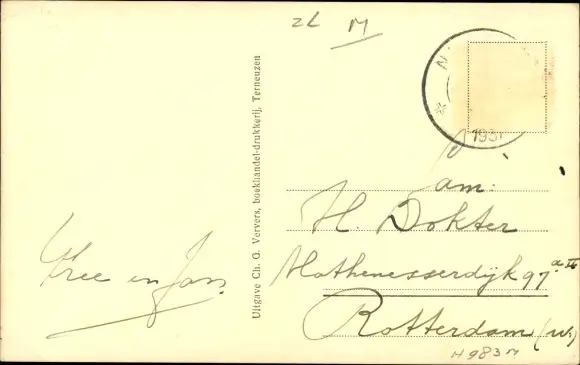 ZL M
N.
193
Uitgave Ch. G. Ververs, boekhandel-drukkerij, Terneuzen
Fam:
H. Dokter
Mathenesserdijk 97 a II
Rotterdam (W.)
en Jan.
H983M